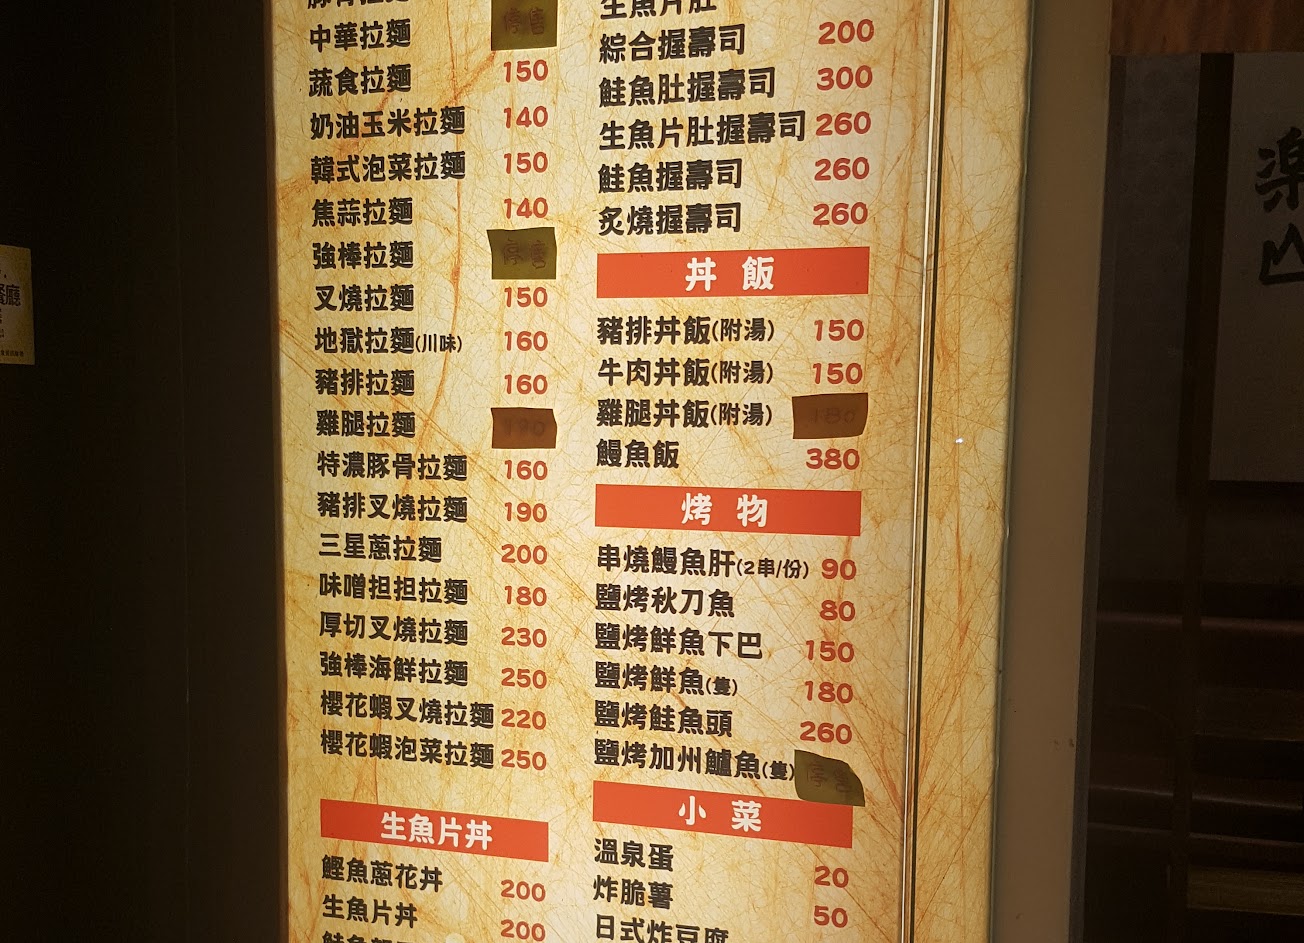 豚骨拉麵
中華拉麵 停售
蔬食拉麵 150
奶油玉米拉麵 140
韓式泡菜拉麵 150
焦蒜拉麵 140
強棒拉麵 停售
叉燒拉麵 150
地獄拉麵(川味) 160
豬排拉麵 160
雞腿拉麵 190
特濃豚骨拉麵 160
豬排叉燒拉麵 190
三星蔥拉麵 200
味噌担担拉麵 180
厚切叉燒拉麵 230
強棒海鮮拉麵 250
櫻花蝦叉燒拉麵 220
櫻花蝦泡菜拉麵 250
生魚片丼
鰹魚蔥花丼 200
生魚片丼 200
生魚片肚
綜合握壽司 200
鮭魚肚握壽司 300
生魚片肚握壽司 260
鮭魚握壽司 260
炙燒握壽司 260
丼飯
豬排丼飯(附湯) 150
牛肉丼飯(附湯) 150
雞腿丼飯(附湯) 180
鰻魚飯 380
烤物
串燒鰻魚肝(2串/份) 90
鹽烤秋刀魚 80
鹽烤鮮魚下巴 150
鹽烤鮮魚(隻) 180
鹽烤鮭魚頭 260
鹽烤加州鱸魚(隻) 停售
小菜
溫泉蛋 20
炸脆薯 50
日式炸豆腐
楽
山